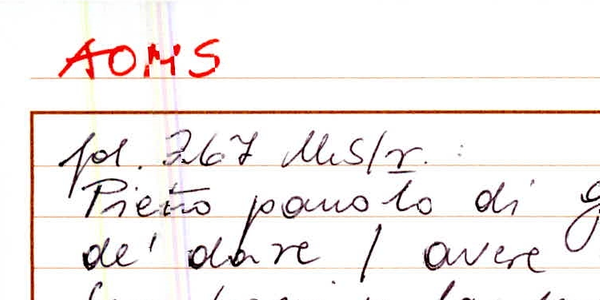 AOMS
fol. 367 MS/r. :
Pietro pauolo di g
de' dare / avere